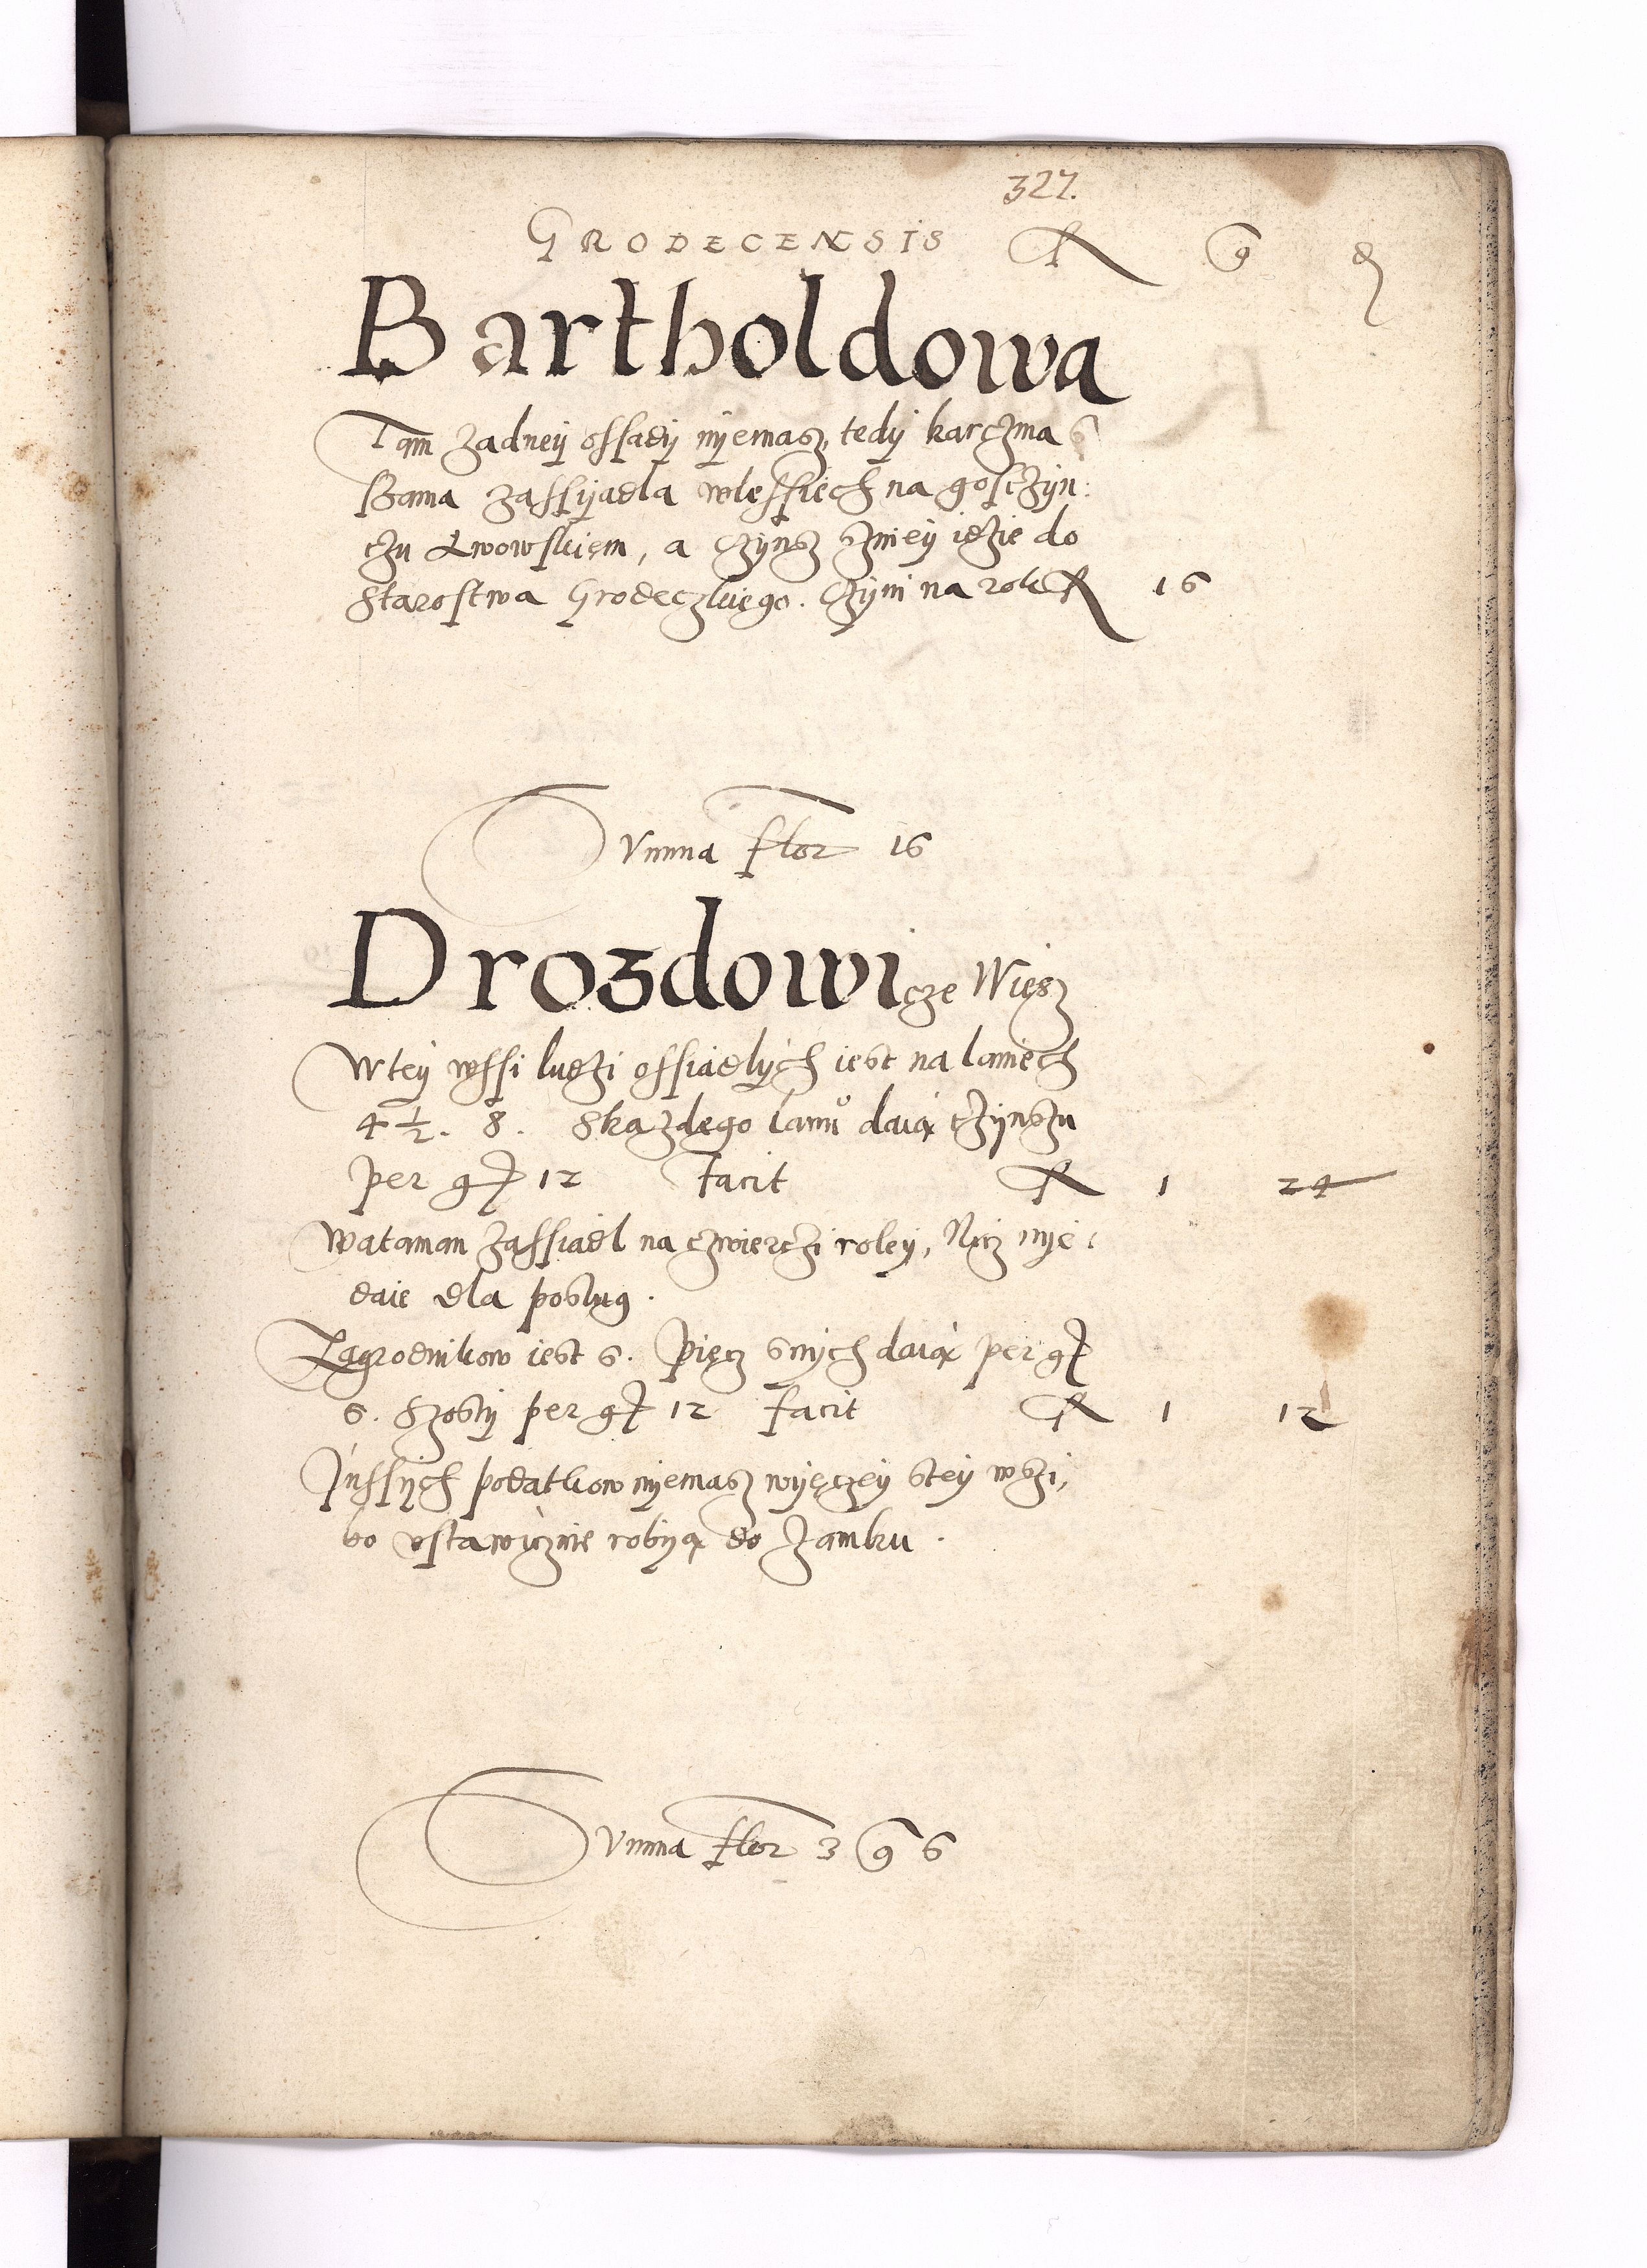 327.
GRODECENSIS fl g d
Bartholdowa
Tam zadneÿ ossadÿ nÿemasz, tedÿ karczma
szama zassÿadla wlessiech na gosczÿn:
czu Lwowskięm, a czÿnsz szniey idzie do
Starostwa Grodeczkięgo. Czÿni na rok fl 16
Summa flor 16
Drozdowicze Więsz
W teÿ wssi ludzi ossiadlÿch iest na laniech
4 1/2. 8. Skazdego lanu daią czÿnszu
per gr 12 facit fl 1 24
Wataman zassiadl na czwierczi roleÿ, Nicz nÿe:
daie dla poslug.
Zagrodnikow iest 6. Pięcz snich daią per gr
6. Szosty per gr 12 facit fl 1 12
Jnssÿch podatkow nÿemasz wÿęczeÿ stey wszi,
bo vstawicznie robÿą do Zamku.
Summa flor 3 g 6